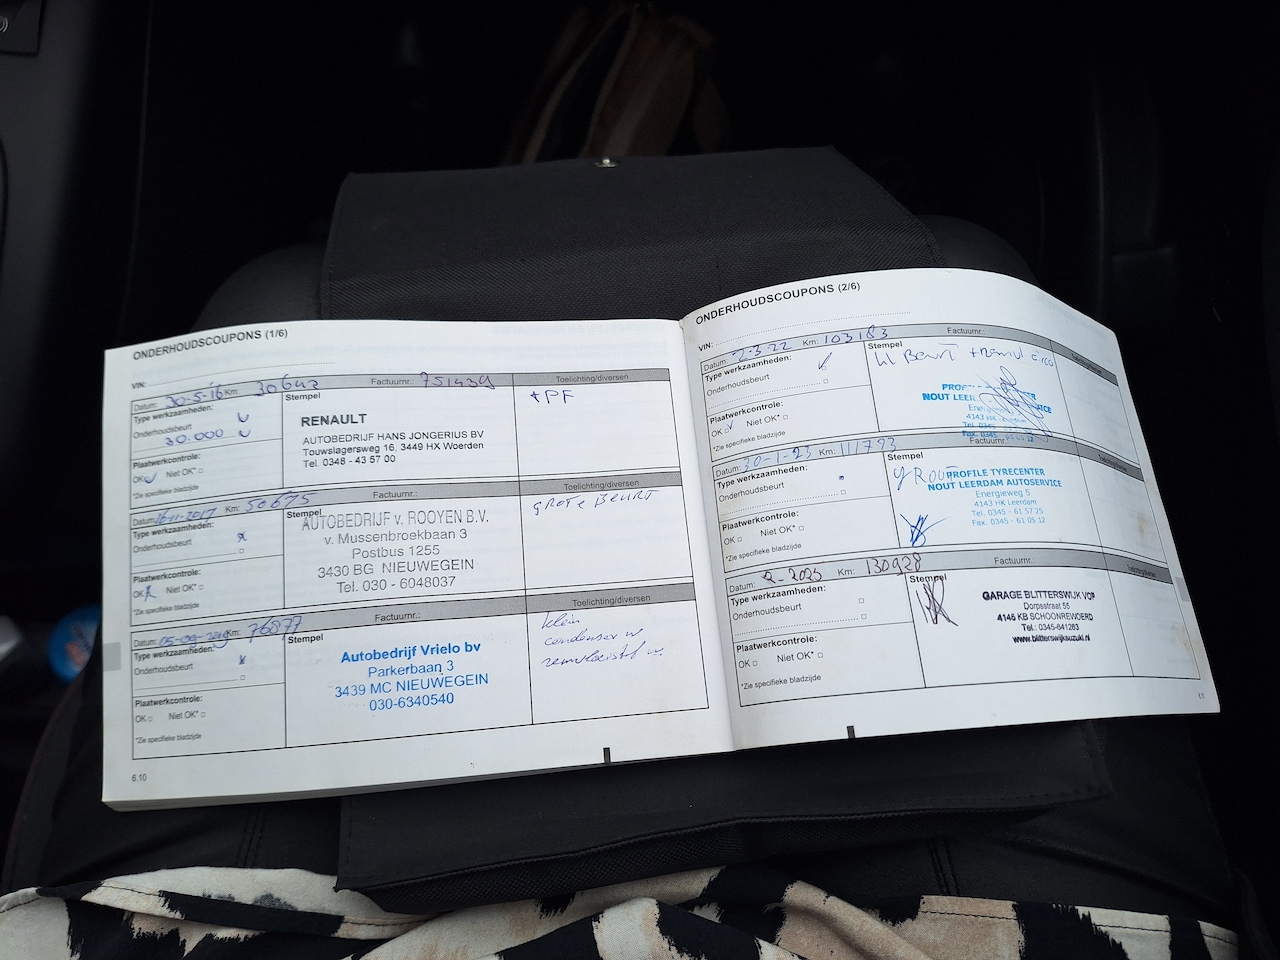 ONDERHOUDSCOUPONS (1/6)
VIN:
Datum: 30-5-16 Km: 30642 Factuurnr.: 751439 Toelichting/diversen
Type werkzaamheden:
Onderhoudsbeurt
30.000
Plaatwerkcontrole:
OK Niet OK*
*Zie specifieke bladzijde
Stempel
RENAULT
AUTOBEDRIJF HANS JONGERIUS BV
Touwslagersweg 16, 3449 HX Woerden
Tel. 0348 - 43 57 00
+PF
Datum: 16-11-2017 Km: 50675 Factuurnr.: Toelichting/diversen
Type werkzaamheden:
Onderhoudsbeurt
Plaatwerkcontrole:
OK Niet OK*
*Zie specifieke bladzijde
Stempel
AUTOBEDRIJF v. ROOYEN B.V.
v. Mussenbroekbaan 3
Postbus 1255
3430 BG NIEUWEGEIN
Tel. 030 - 6048037
grote Beurt
Datum: 05-09-2019 Km: 76877 Factuurnr.: Toelichting/diversen
Type werkzaamheden:
Onderhoudsbeurt
Plaatwerkcontrole:
OK Niet OK*
*Zie specifieke bladzijde
Stempel
Autobedrijf Vrielo bv
Parkerbaan 3
3439 MC NIEUWEGEIN
030-6340540
klein
condensor
remvloeistof
6.10
ONDERHOUDSCOUPONS (2/6)
VIN:
Datum: 2-3-22 Km: 103183 Factuurnr.: Toelichting/diversen
Type werkzaamheden:
Onderhoudsbeurt
Plaatwerkcontrole:
OK Niet OK*
*Zie specifieke bladzijde
Stempel
kl Beurt + remvl
PROFILE
NOUT LEER
4143 HK
Tel. 0345
Fax. 0345
Datum: 30-1-23 Km: 111793 Factuurnr.: Toelichting/diversen
Type werkzaamheden:
Onderhoudsbeurt
Plaatwerkcontrole:
OK Niet OK*
*Zie specifieke bladzijde
Stempel
PROFILE TYRECENTER
NOUT LEERDAM AUTOSERVICE
Energieweg 5
4143 HK Leerdam
Tel. 0345 - 61 57 25
Fax. 0345 - 61 05 12
Datum: 2-2025 Km: 130928 Factuurnr.: Toelichting/diversen
Type werkzaamheden:
Onderhoudsbeurt
Plaatwerkcontrole:
OK Niet OK*
*Zie specifieke bladzijde
Stempel
GARAGE BLITTERSWIJK VOF
Dorpsstraat 55
4145 KB SCHOONREWOERD
Tel.: 0345-641283
www.blitterswijksuzuki.nl